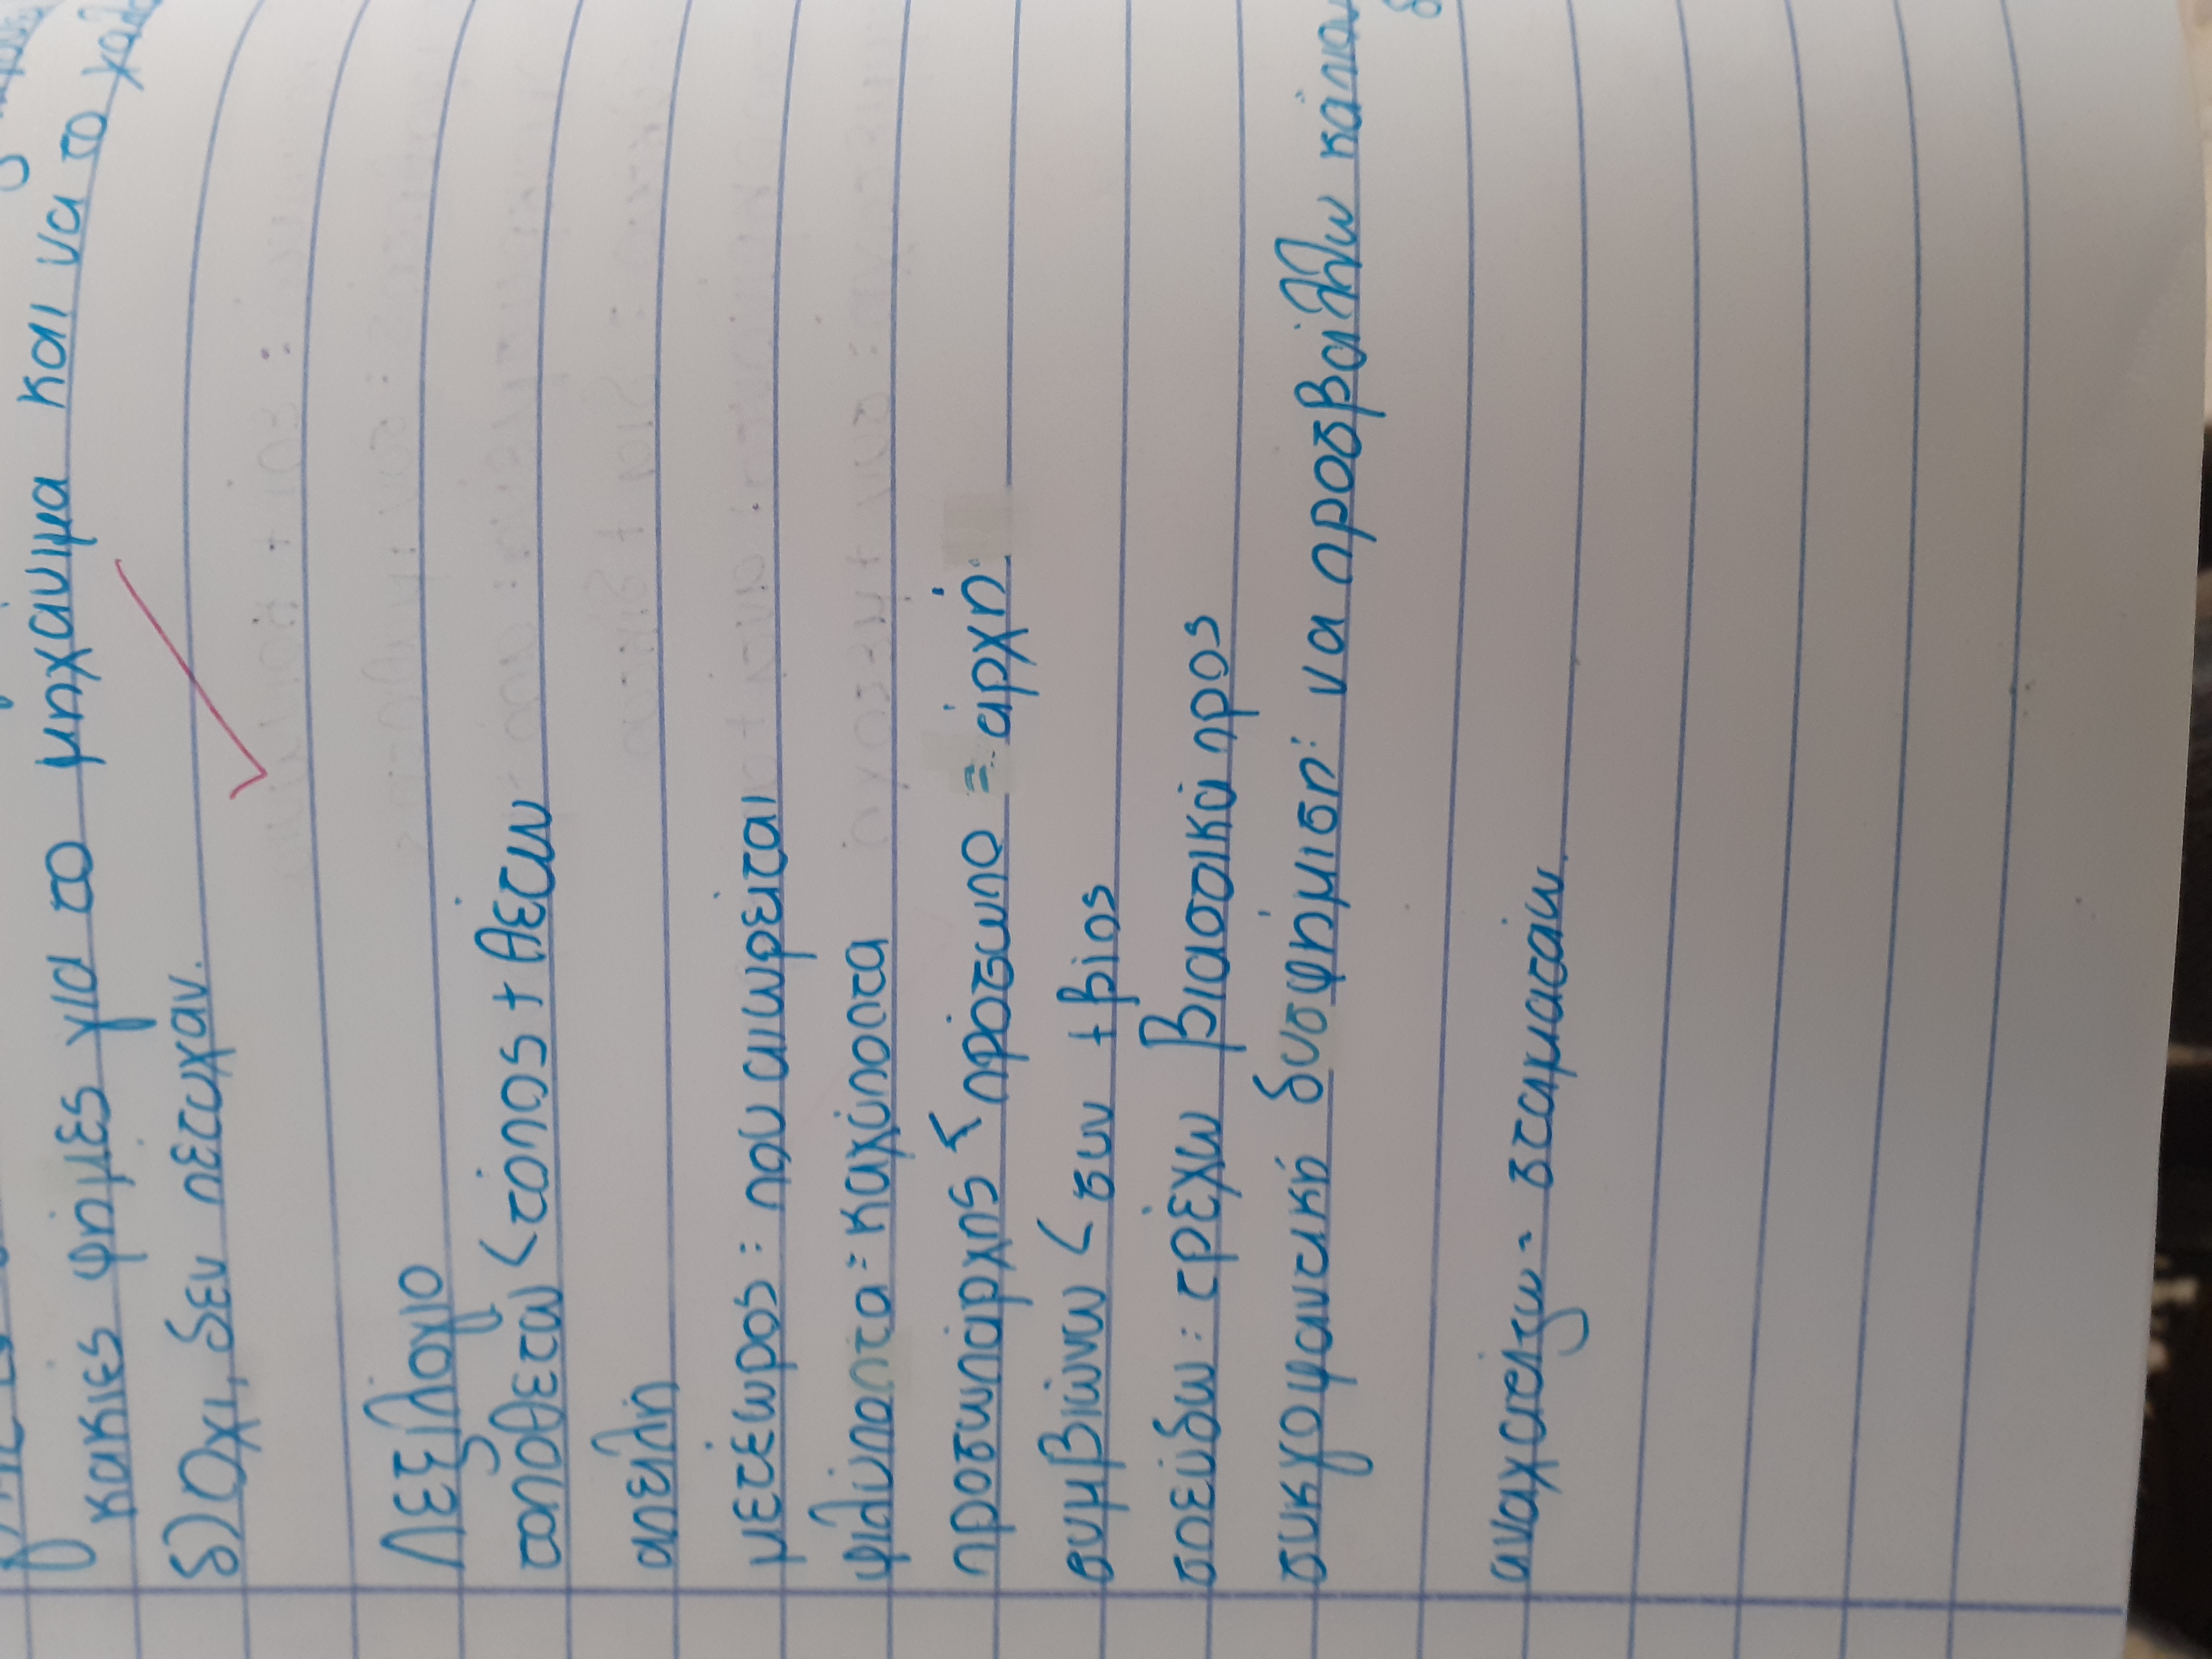 κακιές φήμες για το μηχάνημα και να το
δ) Όχι, δεν πέτυχαν.
Λεξιλόγιο
τοποθετώ < τόπος + θέτω
απειλή
μετέωρος: που αιωρείται
φιλύποπτα = καχύποπτα
προσωπάρχης < πρόσωπο = άρχή.
συμβιώνω < συν + βίος
σπεύδω: τρέχω βιαστικά προς
συκοφαντική δυσφήμιση: να προσβάλλω
αναχαιτίζω = σταματάω.